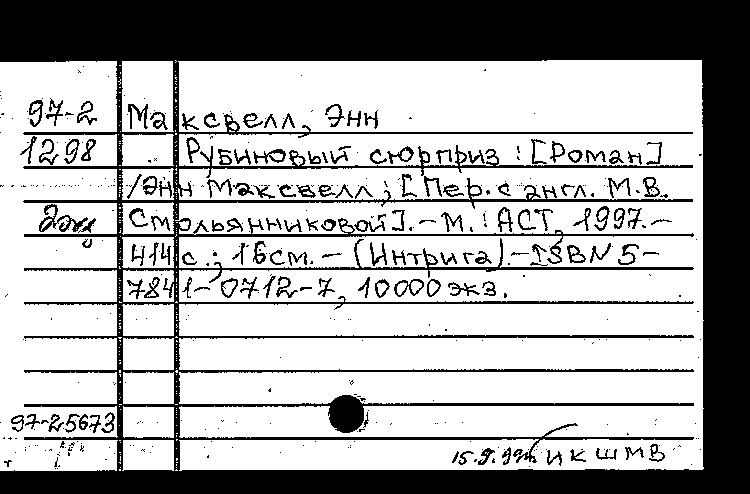 97-2 Максвелл, Энн
1298 Рубиновый сюрприз : [Роман]
/Энн Максвелл ; [Пер. с англ. М.В.
2эц Смольянниковой]. – М. : АСТ, 1997. –
414 с. ; 16 см. – (Интрига). – ISBN 5–
7841–0712–7, 10000 экз.
97-25673
15.9.99г. ИКШМВ